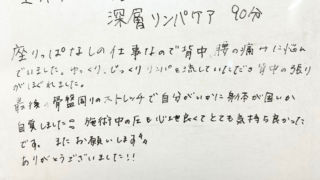 深層リンパケア 90分
座りっぱなしの仕事なので背中、腰の痛みに悩ん
でいました。ゆっくり、じっくりリンパを流していただき背中の張り
がほぐれました。
最後の骨盤周りのストレッチで自分がいかに身体が固いか
自覚しました。施術中の圧も心地良くてとても気持ち良かった
です。またお願いします。
ありがとうございました!!